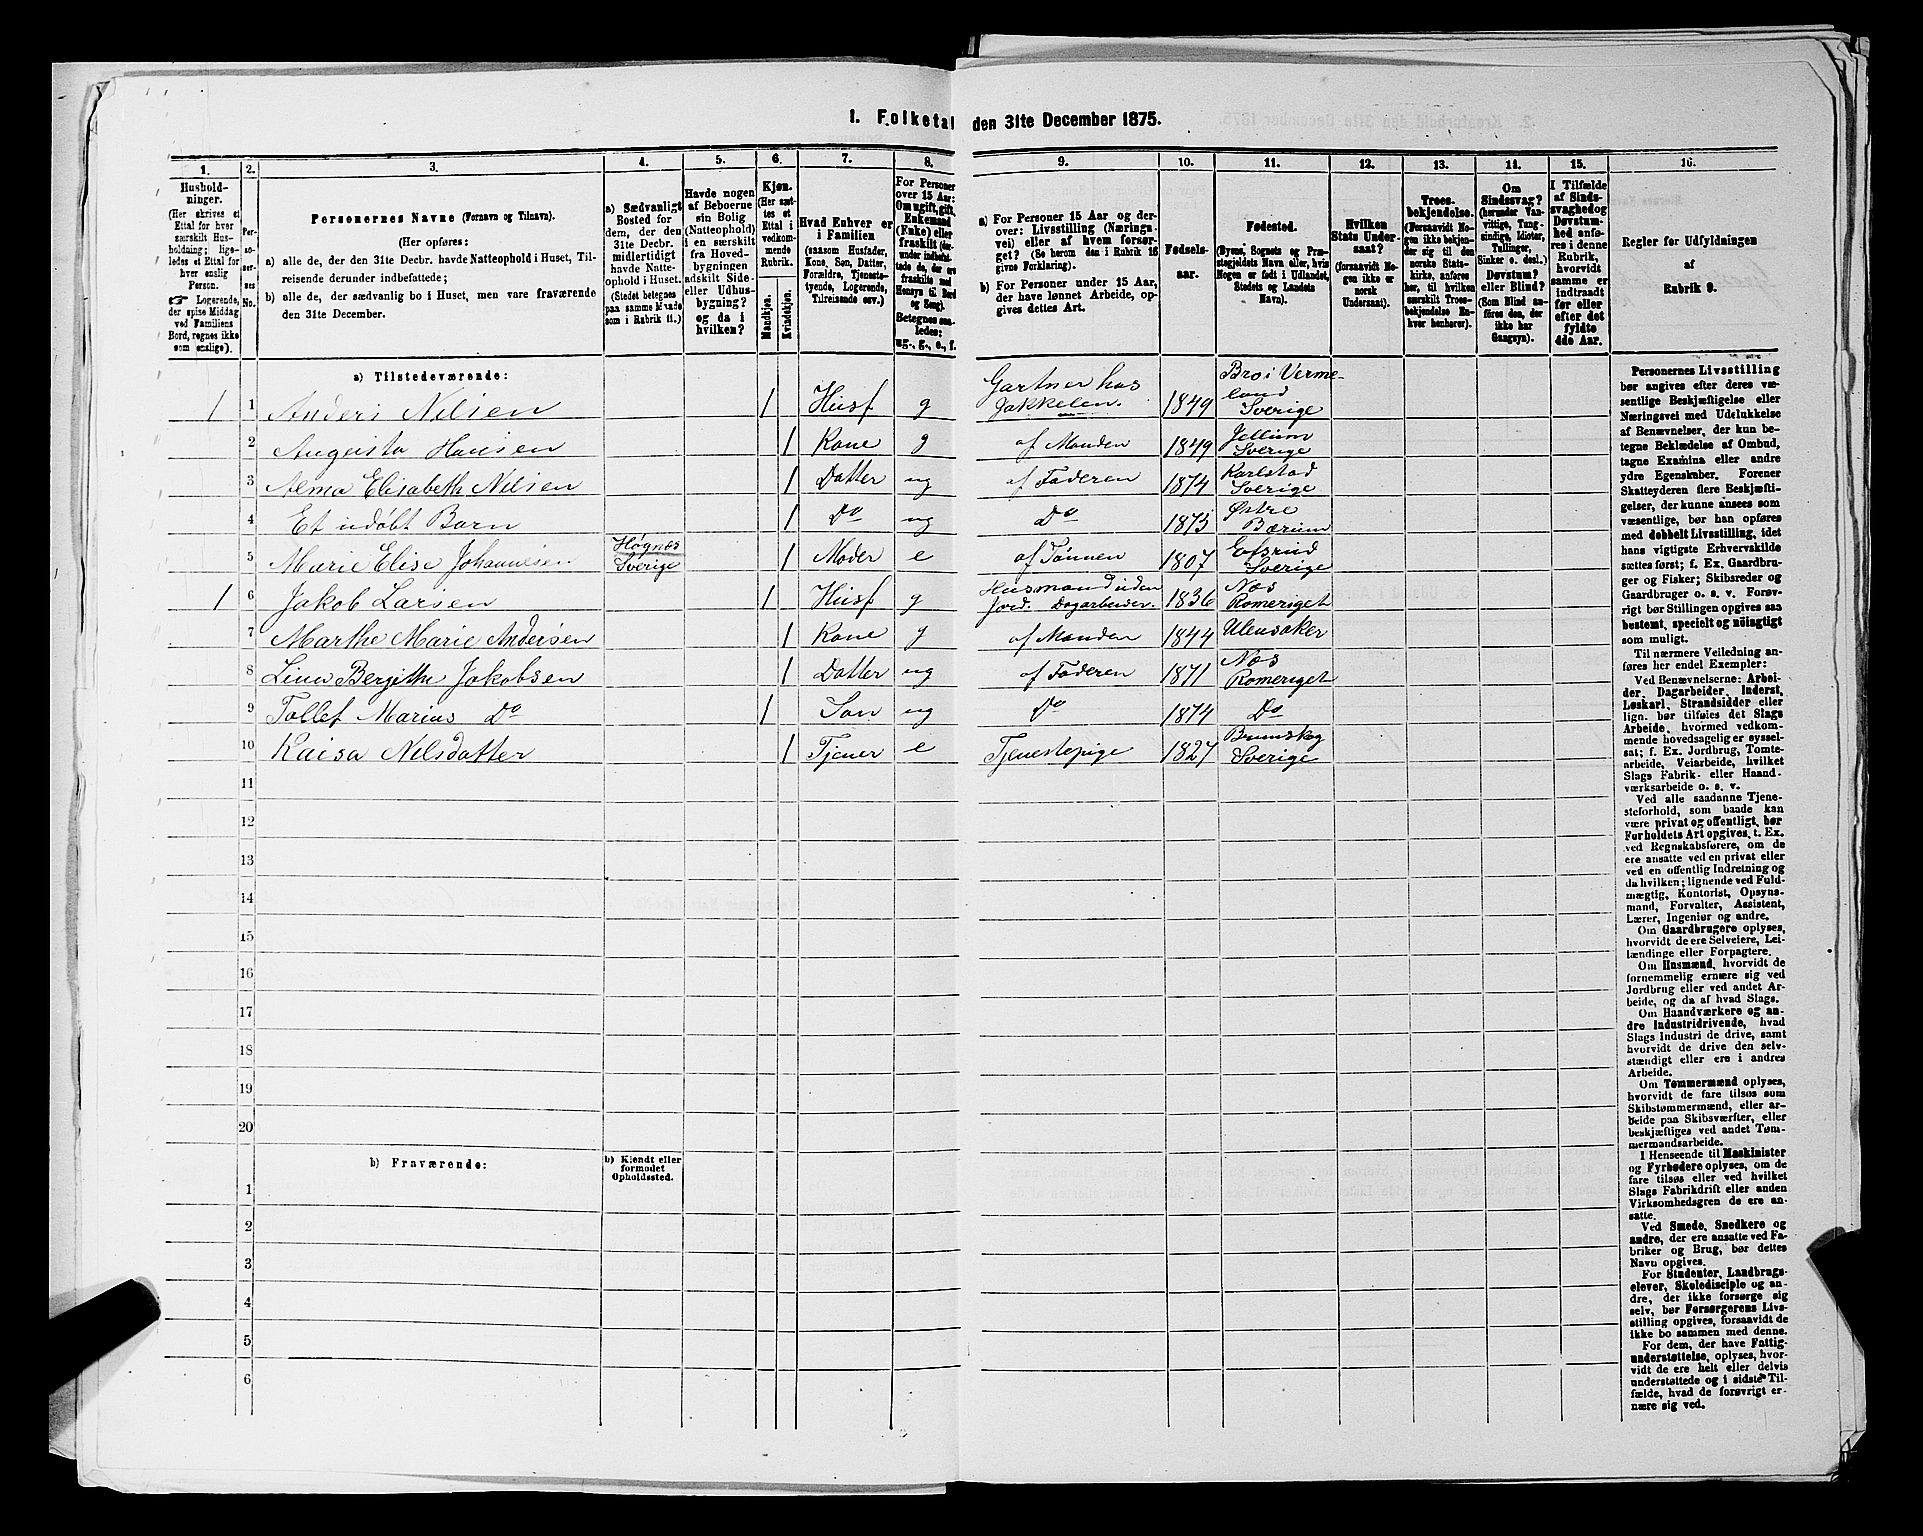 1. Folketal den 31te December 1875.
1.
2.
3.
4.
5.
6.
7.
8.
9.
10.
11.
12.
13.
14.
15.
16.
Husholdninger.
(Her skrives et
Ettal for hver
særskilt Husholdning; ligeledes
et Ettal for
hver enslig
Person.
☞ Logerende,
der spise Middag
ved Familiens
Bord, regnes ikke
som enslige).
Personernes No.
Personernes Navne (Fornavn og Tilnavn).
(Her opføres:
a) alle de, der den 31te Decbr. havde Natteophold i Huset, Tilreisende derunder indbefattede;
b) alle de, der sædvanlig bo i Huset, men vare fraværende
den 31te December.
a) Sædvanligt
Bosted for
dem, der den
31te Decbr.
midlertidigt
havde Natteophold
i Huset.
(Stedet betegnes
paa samme Maade
som i Rubrik 11.)
Havde nogen
af Beboerne
sin Bolig
(Natteophold)
i en særskilt
fra Hovedbygningen
adskilt Side-
eller Udhusbygning?
og da i
hvilken?
Kjøn.
(Her sættes et
Ettal i
vedkommende
Rubrik.
Mandkjøn.
Kvindekjøn.
Hvad Enhver er
i Familien
(saasom Husfader,
Kone, Søn, Datter,
Forældre, Tjenestetyende,
Logerende,
Tilreisende osv.)
For Personer
over 15 Aar:
Om ugift, gift,
Enkemand
(Enke) eller
fraskilt
Betegnes saaledes:
ug., g., e., f.
a) For Personer 15 Aar og derover:
Livsstilling (Næringsvei)
eller af hvem forsørget?
(Se herom den i Rubrik 16
givne Forklaring).
b) For Personer under 15 Aar,
der have lønnet Arbeide, opgives
dettes Art.
Fødselsaar.
Fødested.
(Byens, Sognets og Præstegjeldets
Navn eller, hvis
Nogen er født i Udlandet,
Stedets og Landets
Navn).
Hvilken
Stats Undersaat?
(forsaavidt Nogen
ikke er
norsk
Undersaat).
Troesbekjendelse.
(Forsaavidt Nogen
ikke bekjender
sig til den
norske Statskirke,
anføres
her, til hvilken
særskilt Troesbekjendelse
Enhver
henhører).
Om
Sindssvag?
(herunder Vanvittige,
Tungsindige, Idioter,
Tullinger,
Sinker o. desl.)
Døvstum?
eller Blind?
(Som Blind anføres
den, der
ikke har
Gangsyn).
I Tilfælde
af Sindssvaghed og
Døvstumhed
anføres
i denne
Rubrik,
hvorvidt
samme er
indtraadt
før eller
efter det
fyldte
4de Aar.
Regler for Udfyldningen
af
Rubrik 9.
a) Tilstedeværende:
1 1 Anders Nilsen 1 Husf g Gartner hos Jakkelen. 1849 Bro i Vermeland Sverige
2 Augusta Hansen 1 Kone g af Manden 1849 Sverige
3 Alma Elisabeth Nilsen 1 Datter ug af Faderen 1874 Karlstad Sverige
4 Et udøbt Barn 1 Do ug Do 1875 Østre Bærum
5 Marie Elise Johannesen Høgnæs Sverige 1 Moder e af Sønnen 1807 Sverige
1 6 Jakob Larsen 1 Husf g Husmand uden Jord. Dagarbeider. 1836 Næs Romeriget
7 Marthe Marie Andersen 1 Kone g af Manden 1844 Ulensaker
8 Lina Bergithe Jakobsen 1 Datter ug af Faderen 1871 Næs Romeriget
9 Tollef Marius Do 1 Søn ug Do 1874 Do
10 Kaisa Nilsdatter 1 Tjener e Tjenestepige 1827 Brunskog Sverige
11
12
13
14
15
16
17
18
19
20
b) Fraværende:
b) Kjendt eller
formodet
Opholdssted.
1
2
3
4
5
6
Personernes Livsstilling
bør angives efter deres væsentlige
Beskjæftigelse eller
Næringsvei med Udelukkelse
af Benævnelser, der kun betegne
Beklædelse af Ombud,
tagne Examina eller andre
ydre Egenskaber. Forener
Skatteyderen flere Beskjæftigelser,
der kunne ansees som
væsentlige, bør han opføres
med dobbelt Livsstilling, idet
hans vigtigste Erhvervskilde
sættes først; f. Ex. Gaardbruger
og Fisker; Skibsreder og
Gaardbruger o. s. v. Forøvrigt
bør Stillingen opgives saa
bestemt, specielt og nöiagtigt
som muligt.
Til nærmere Veiledning anføres
her endel Exempler:
Ved Benævnelserne: Arbeider,
Dagarbeider, Inderst,
Løskarl, Strandsidder eller
lign. bør tilføies det Slags
Arbeide, hvormed vedkommende
hovedsagelig er sysselsat;
f. Ex. Jordbrug, Tomtearbeide,
Veiarbeide, hvilket
Slags Fabrik- eller Haandværksarbeide
o. s. v.
Ved alle saadanne Tjenesteforhold,
som baade kan
være privat og offentligt, bør
Forholdets Art opgives, t. Ex.
ved Regnskabsførere, om de
ere ansatte ved en privat eller
ved en offentlig Indretning og
da hvilken; lignende ved Fuldmægtig,
Kontorist, Opsynsmand,
Forvalter, Assistent,
Lærer, Ingeniør og andre.
Om Gaardbrugere oplyses,
hvorvidt de ere Selveiere, Leilændinge
eller Forpagtere.
Om Husmænd, hvorvidt de
fornemmelig ernære sig ved
Jordbrug eller ved andet Arbeide,
og da af hvad Slags.
Om Haandværkere og andre
Industridrivende, hvad
Slags Industri de drive, samt
hvorvidt de drive den selvstændigt
eller ere i andres
Arbeide.
Om Tømmermænd oplyses,
hvorvidt de fare tilsøs som
Skibstømmermænd, eller arbeide
paa Skibsværfter, eller
beskjæftiges ved andet Tømmermandsarbeide.
I Henseende til Maskinister
og Fyrbødere oplyses, om de
fare tilsøs eller ved hvilket
Slags Fabrikdrift eller anden
Virksomhedsgren de ere ansatte.
Ved Smede, Snedkere og
andre, der ere ansatte ved Fabriker
og Brug, bør dettes
Navn opgives.
For Studenter, Landbrugselever,
Skoledisciple og andre,
der ikke forsørge sig
selv, bør Forsørgerens Livsstilling
opgives, forsaavidt de
ikke bo sammen med denne.
For dem, der have Fattigunderstøttelse,
oplyses, hvorvidt
de ere helt eller delvis
understøttede og i sidste Tilfælde,
hvad de forøvrigt ernære
sig ved.